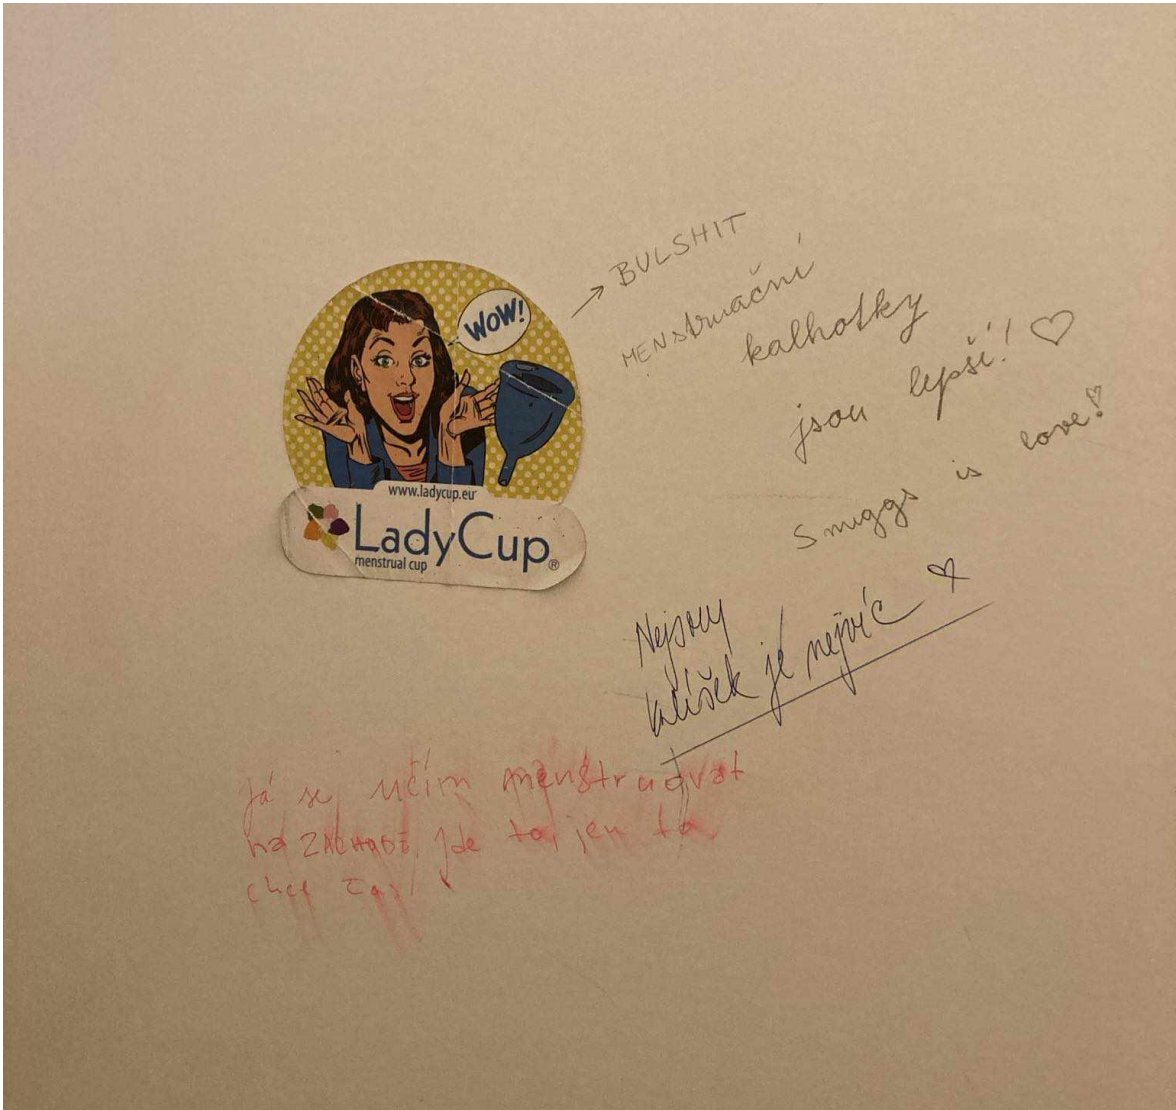 WOW!
www.ladycup.eu
LadyCup®
menstrual cup
→ BULSHIT
MENstruační
kalhotky
jsou lepší! ♡
Snuggs is love!
Nejsou
kalíšek je nejvíc ♡
Já se učím menstruovat
na ZÁCHODĚ, jde to, jen to
chce